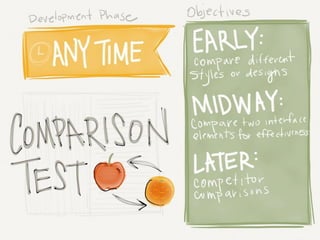 Development Phase
ANY TIME
COMPARISON
TEST
Objectives
EARLY:
compare different
styles or designs
MIDWAY:
Compare two interface
elements for effectiveness
LATER:
competitor
comparisons